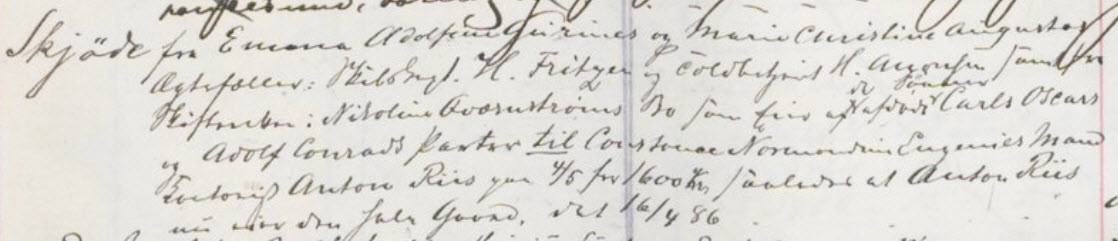 Skjöde fra Emma Adolfine Guirines og Marie Christine Augustas
Ægtefæller: Skibsbygt. H. Fritzen og Toldbetjent H. samt fra
Skifteretten: Nikoline Qværnstrøms Bo som Eier af de afdøde Sønner Carls Oscars
og Adolf Conrads Parter til Constance Normandine Eugenies Mand
Kontorist Anton Riis paa 4/5 for 1600 Kr, saaledes at Anton Riis
nu eier den hele Gaard, dat 16/4 86